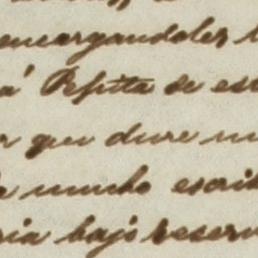 encargandoles
á Pepita de est
r que dure m
mucho escrib
ria bajo reserv